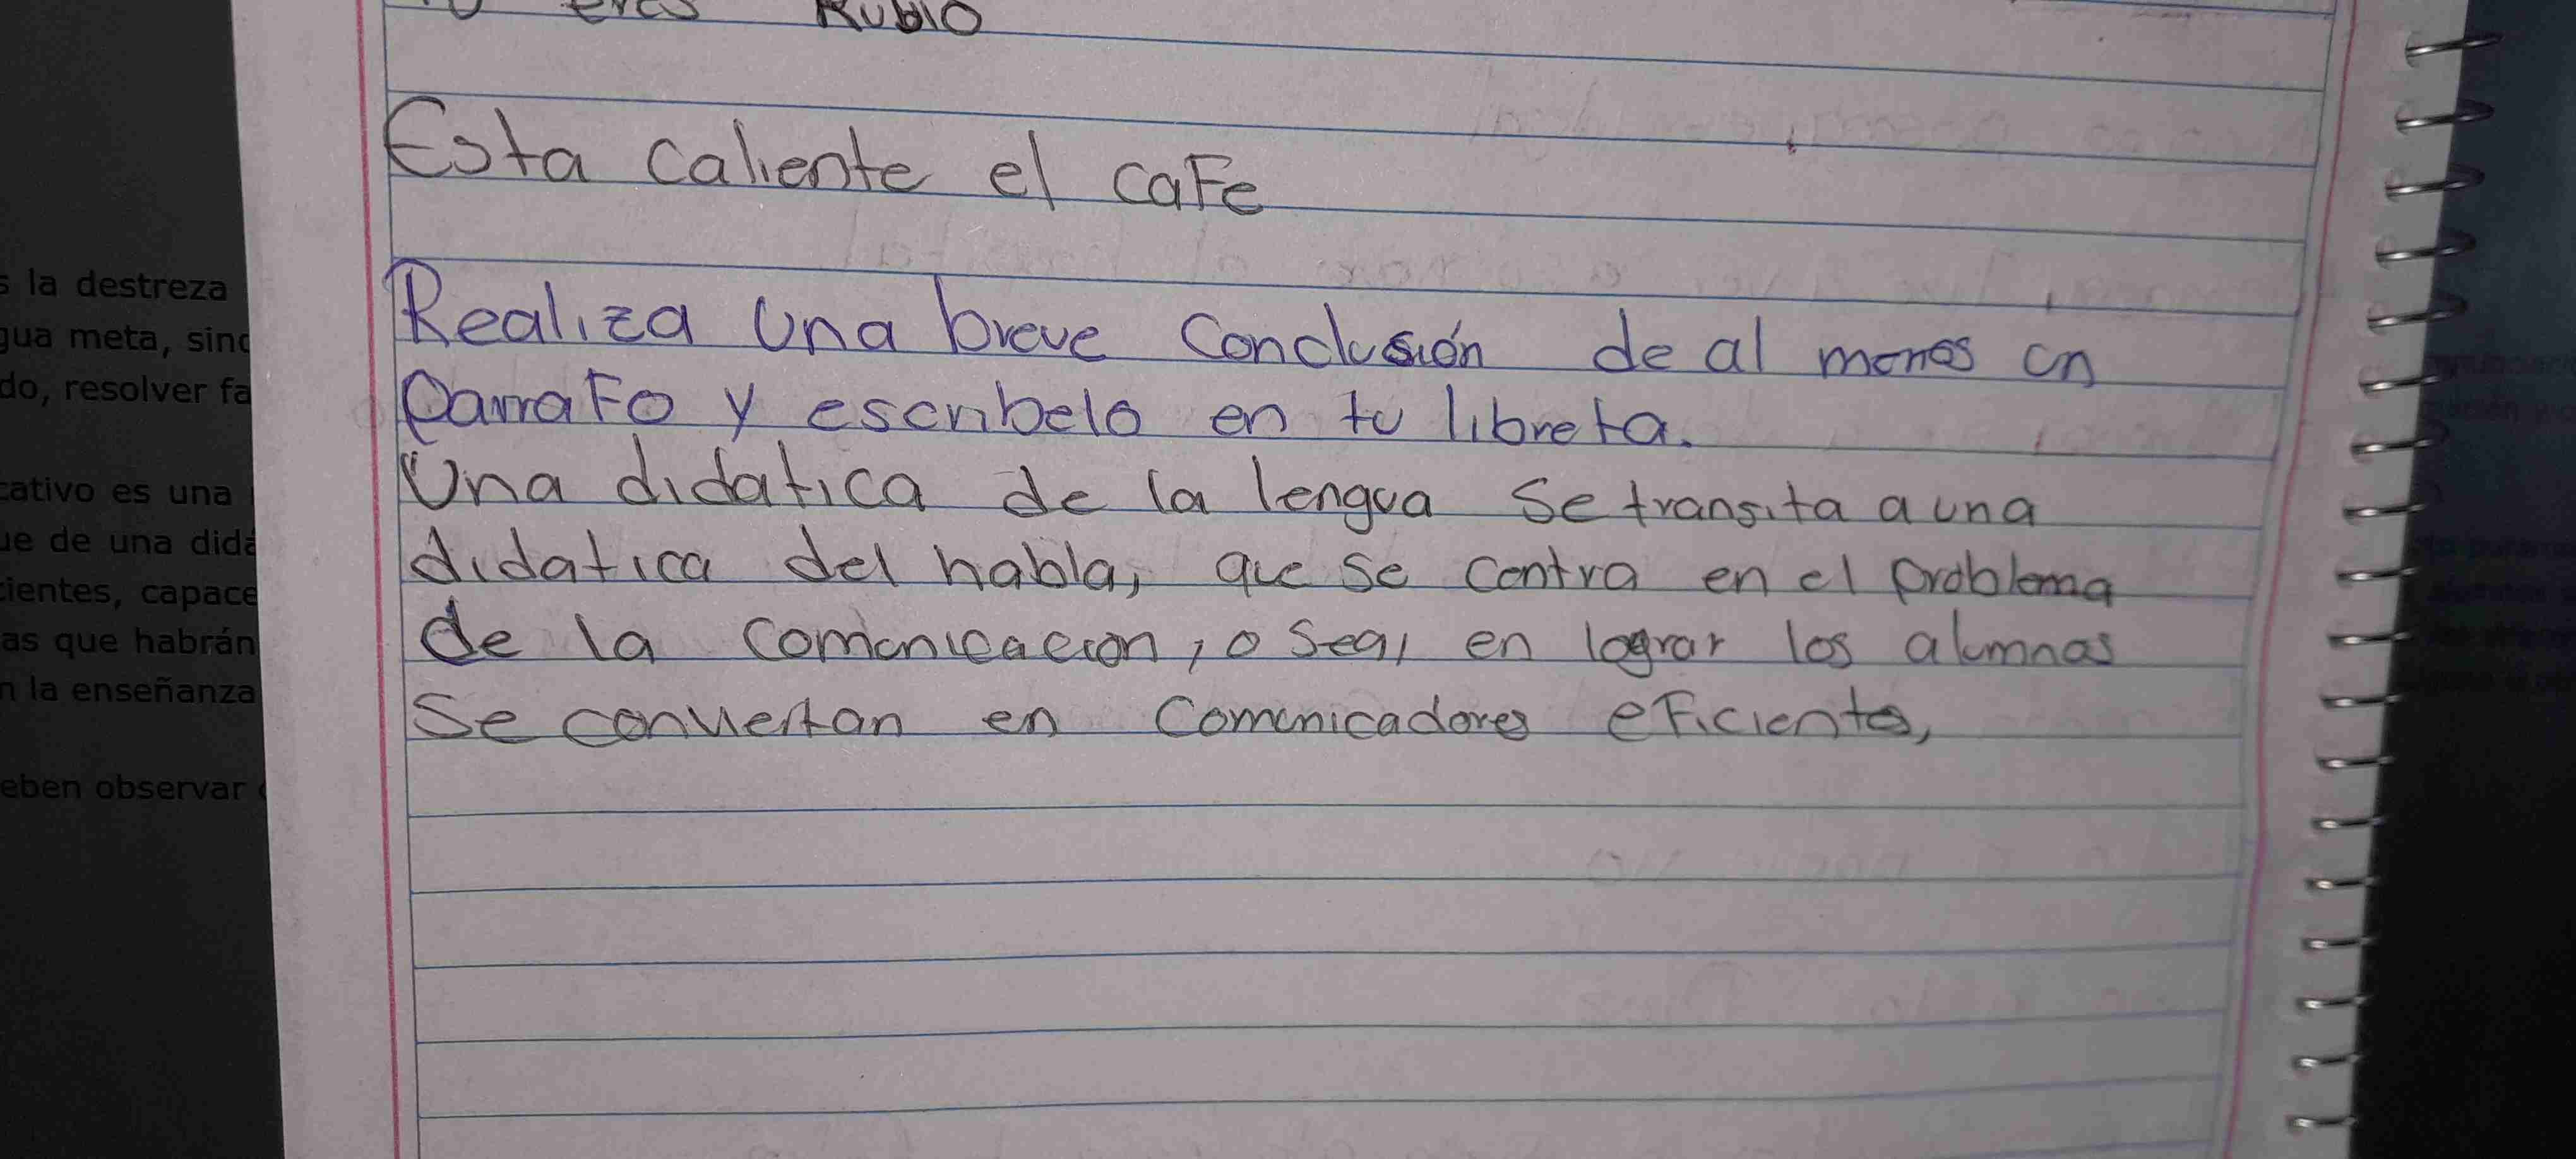 eres Rubio
Esta caliente el caFe
Realiza una breve Conclusión de al menos un
ParraFo y escribelo en tu libreta.
Una didatica de la lengua se transita a una
didatica del habla, que se centra en el problema
de la comonicacion, o sea, en lograr los alumnos
Se conviertan en comunicadores eFicientes,
s la destreza
gua meta, sinc
do, resolver fa
cativo es una
ue de una didá
cientes, capace
as que habrán
n la enseñanza
eben observar